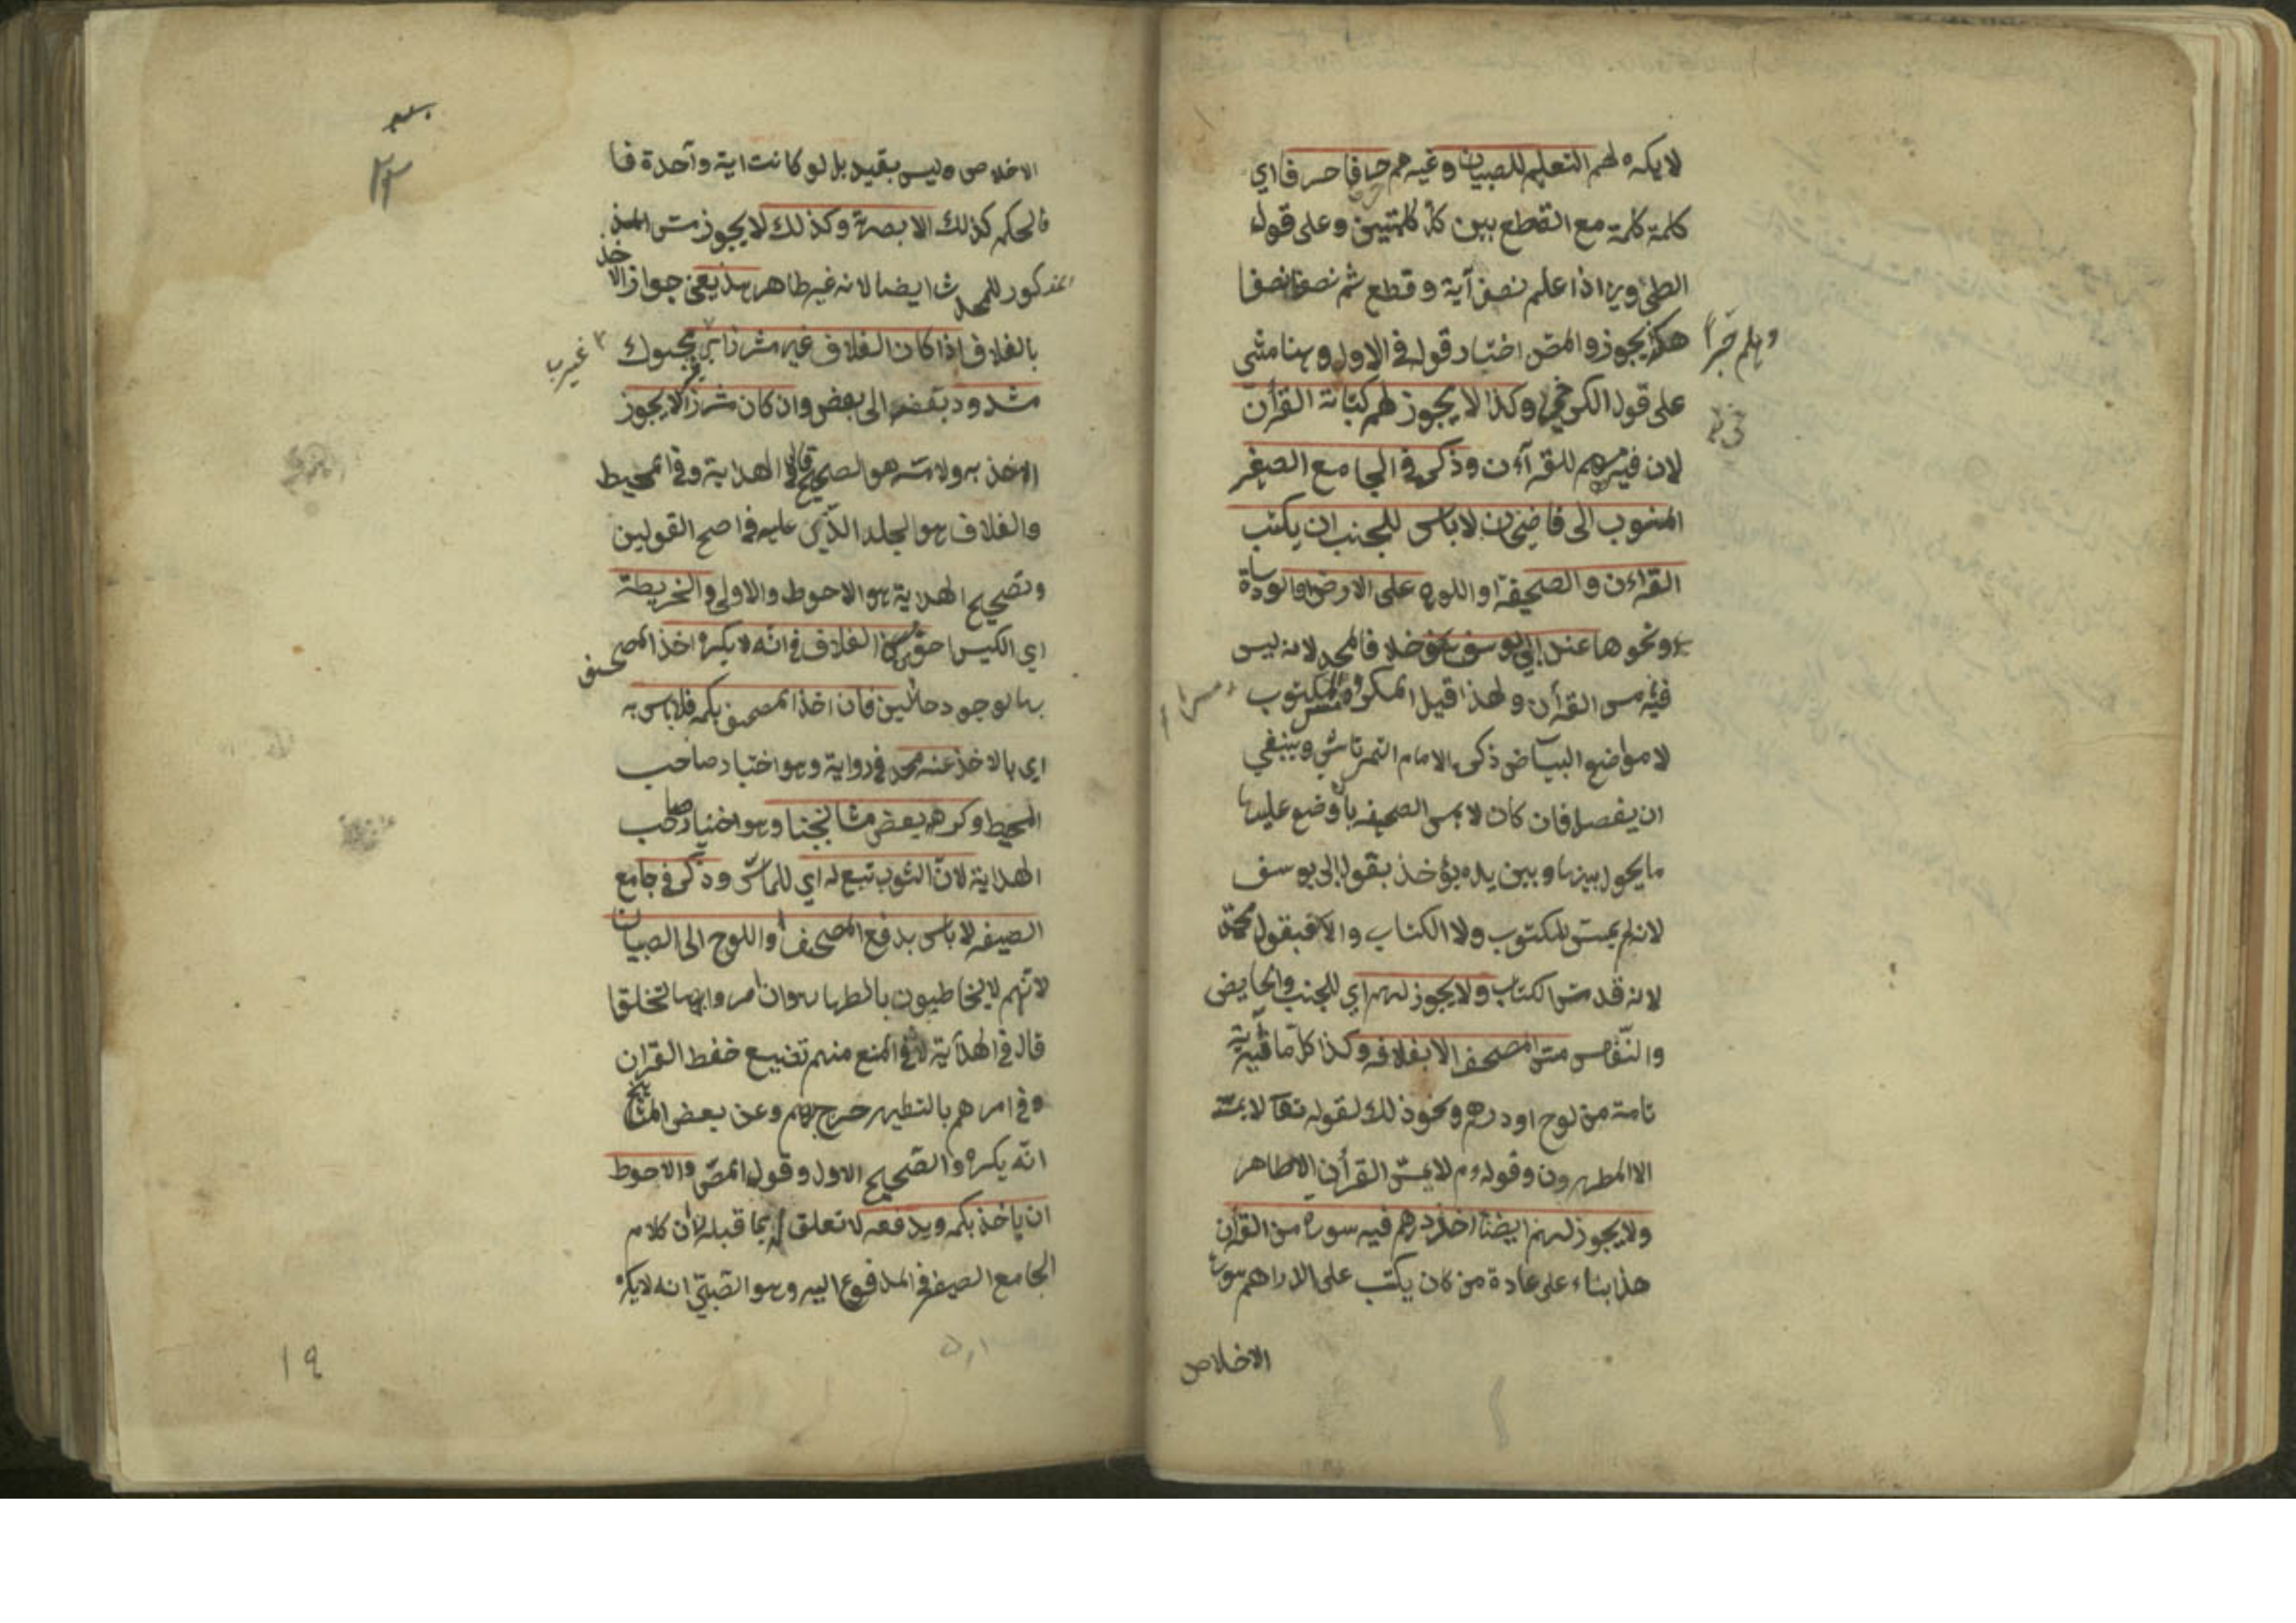 لا يكره لهم التعليم للصبيان وغيرهم حرفا حرفا اي
كلمة كلمة مع القطع بين كل كلمتين وعلى قول
الطحاوي اذا علم نصف آية وقطع ثم نصفا نصفا
وهلم جرا
هكذا يجوز والمص اختار قوله في الاول وهنا مشى
على قول الكرخي وكذا لا يجوز لهم كتابة القرآن
لان فيه مسهم للقرآءن وذكر في الجامع الصغير
المنسوب الى قاضيخان لا باس للجنب ان يكتب
القراءن والصحيفة او اللوح على الارض او الوسادة
ونحوها عند ابي يوسف خلافا لمحمد لانه ليس
فيه مس القرأن ولهذا قيل المكروه مس المكتوب
لا مواضع البياض ذكره الامام التمرتاشي وينبغي
ان يفصل فان كان لا يمس الصحيفه بان وضع عليها
ما يحول بينها وبين يده يؤخذ بقول ابي يوسف
لانه لم يمس المكتوب ولا الكتاب والا فبقول محمد
لانه قد مس الكتاب ولا يجوز لهم اي للجنب والحايض
والنفس مس المصحف الا بغلافه وكذا كل ما فيه آية
تامة من لوح او درهم ونحو ذلك لقوله تعا لا يمسه
الا المطهرون وقوله ءم لا يمس القرأن الا طاهر
ولا يجوز لهم ايضا اخذ درهم فيه سورة من القرأن
هذا بناء على عادة من كان يكتب على الدراهم سورة
الاخلاص
الاخلاص وليس بقيد بل لو كانت اية واحدة فا
فالحكم كذلك الا بصرة وكذلك لا يجوز مس المذ
كور للمحدث ايضا لانه غير طاهر هذا يعني جواز الاخذ
بالغلاف اذا كان الغلاف غير مشرز اي محبوك
غير
مشدود بعضه الى بعض وان كان مشرزا لا يجوز
الاخذ به ولا مسه هو الصحيح قال في الهداية وفي المحيط
والغلاف هو الجلد الذي عليه في اصح القولين
وتصحيح الهداية هو الاحوط والاولى والخريطة
اي الكيس احق من الغلاف في انه لا يكره اخذ المصحف
بها لوجود حائلين فان اخذ المصحف بكمه فلا باس به
اي بالاخذ عند محمد في رواية وهو اختيار صاحب
المحيط وكرهه بعض مشائخنا وهو اختيار صاحب
الهداية لان الثوب تبع له اي للماس وذكر في جامع
الصغير لا باس بدفع المصحف او اللوح الى الصبيان
لانهم لا يخاطبون بالطهارة وان امروا بها تخلقا
قال في الهداية لان في المنع منهم تضييع حفظ القران
وفي امرهم بالتطهير حرج بهم وعن بعض المشايخ
انه يكره والصحيح الاول وقول المص والاحوط
ان ياخذ بكمه ويدفعه لا تعلق له بما قبله لان كلام
الجامع الصغير في المدفوع اليه وهو الصبي انه لا يكره
١٩